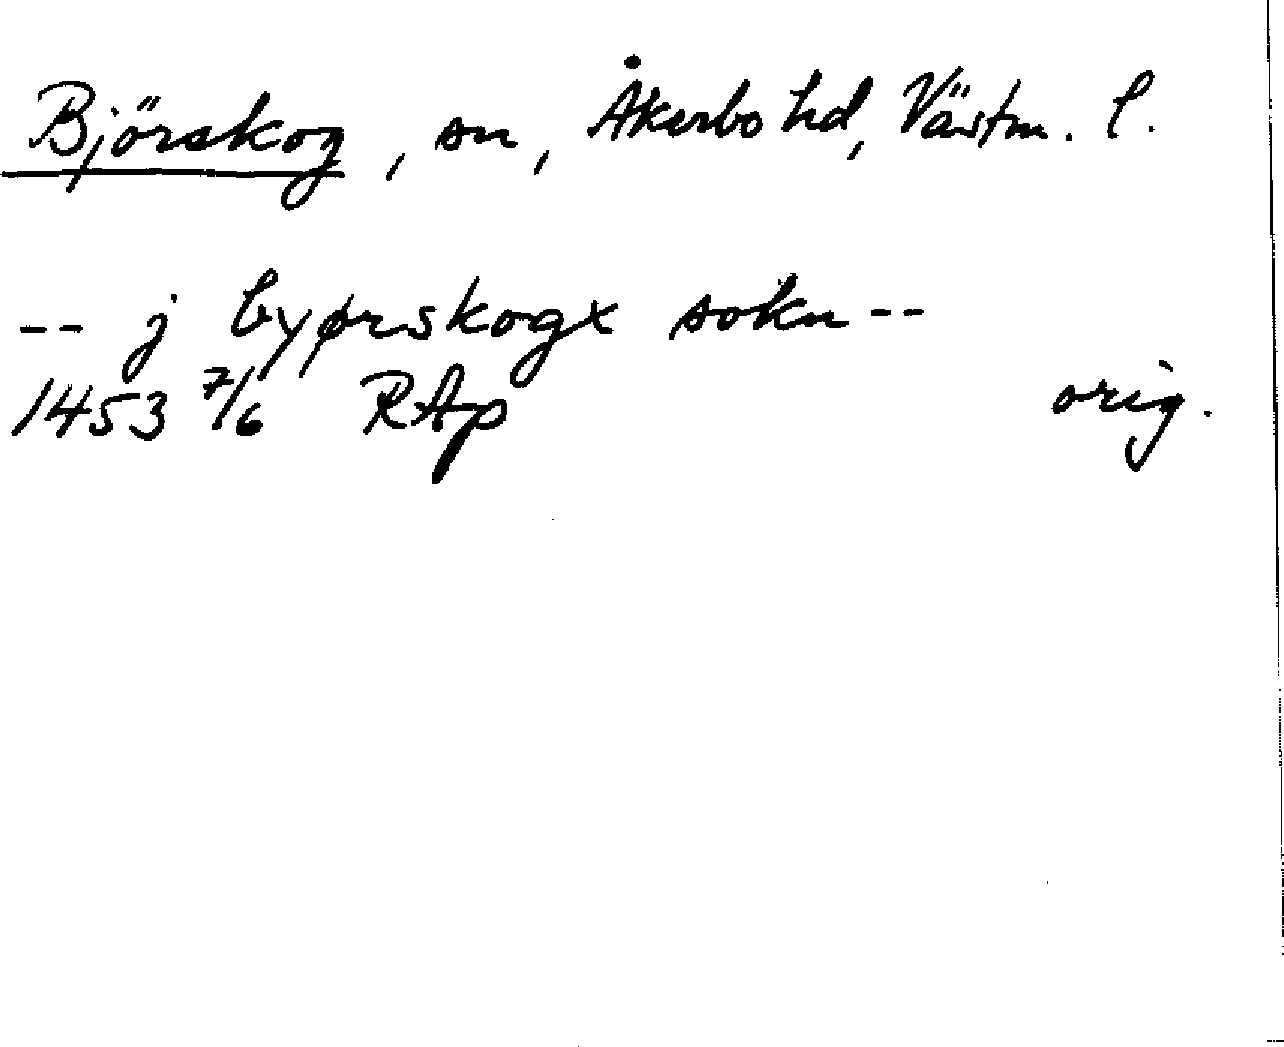 Björskog, sn, Åkerbo hd, Västm. l.
-- j byørskogx sokn --
1453 7/6 RAp orig.